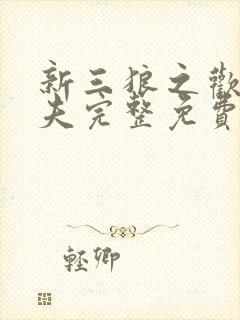 新三狼之歡
夫完整免費
輕卿